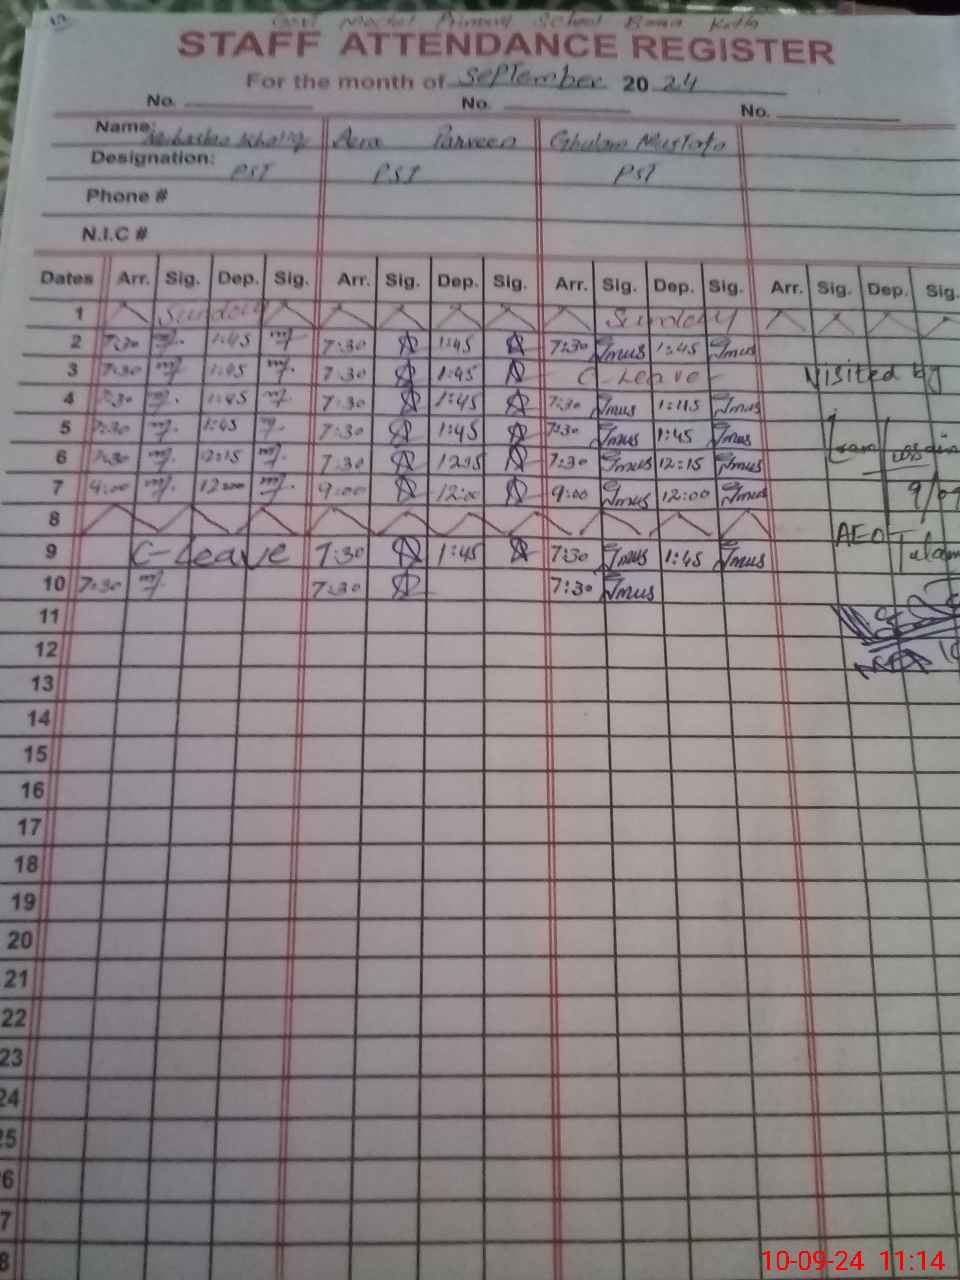 Govt Model Primary School
STAFF ATTENDANCE REGISTER
For the month of September 20 24
No. No. No.
Name: Parveen Ghulam Mustafa
Designation: PST PST PST
Phone #
N.I.C #
Dates Arr. Sig. Dep. Sig. Arr. Sig. Dep. Sig. Arr. Sig. Dep. Sig. Arr. Sig. Dep. Sig.
1 Sunday Sunday
2 7:30 1:45 7:30 1:45 7:30 Gmus 1:45 Gmus
3 7:30 1:45 7:30 1:45 C-Leave Visited by
4 7:30 1:45 7:30 1:45 7:30 Gmus 1:45 Gmus
5 7:30 1:45 7:30 1:45 7:30 Gmus 1:45 Gmus
6 7:30 12:15 7:30 12:15 7:30 Gmus 12:15 Gmus
7 12:00 9:00 12:00 9:00 Gmus 12:00 Gmus 9/09
8
9 C-Leave 7:30 1:45 7:30 Gmus 1:45 Gmus AEO
10 7:30 7:30 7:30 Gmus
11
12
13
14
15
16
17
18
19
20
21
22
23
24
25
6
7
8
10-09-24 11:14